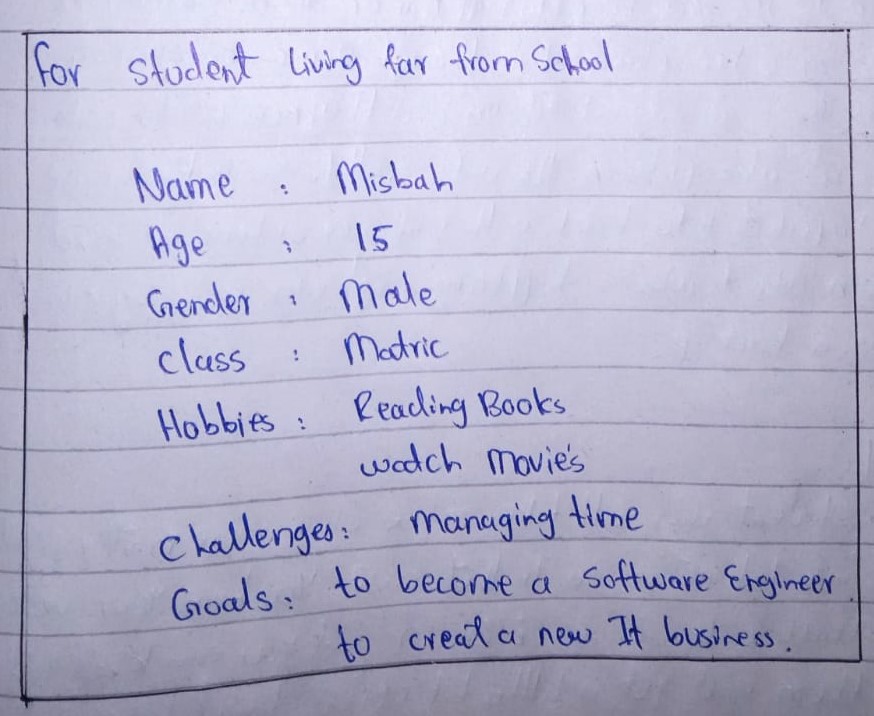 For Student living far from School
Name : Misbah
Age : 15
Gender : Male
Class : Matric
Hobbies : Reading Books
watch movie's
Challenges : managing time
Goals : to become a Software Engineer
to creat a new It business.